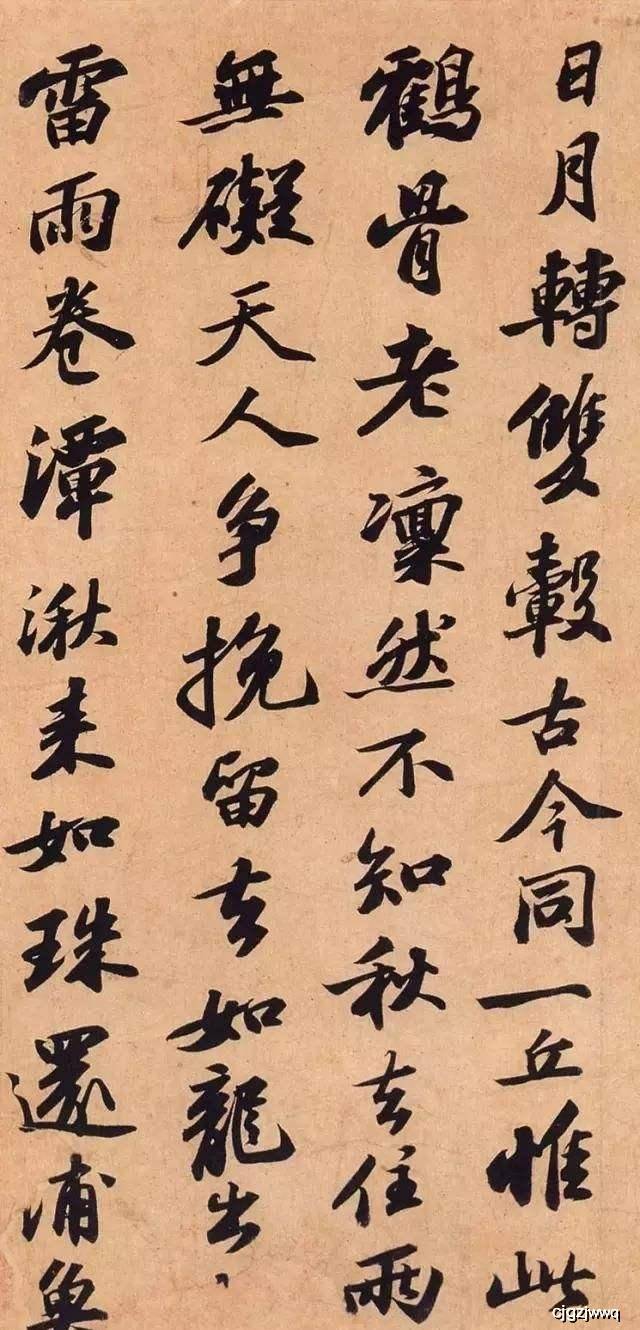 日月轉雙轂古今同一丘惟此
鶴骨老凜然不知秋去住兩
無礙天人争挽留去如龍出
雷雨卷潭湫来如珠還浦魚
cjgzjwwq